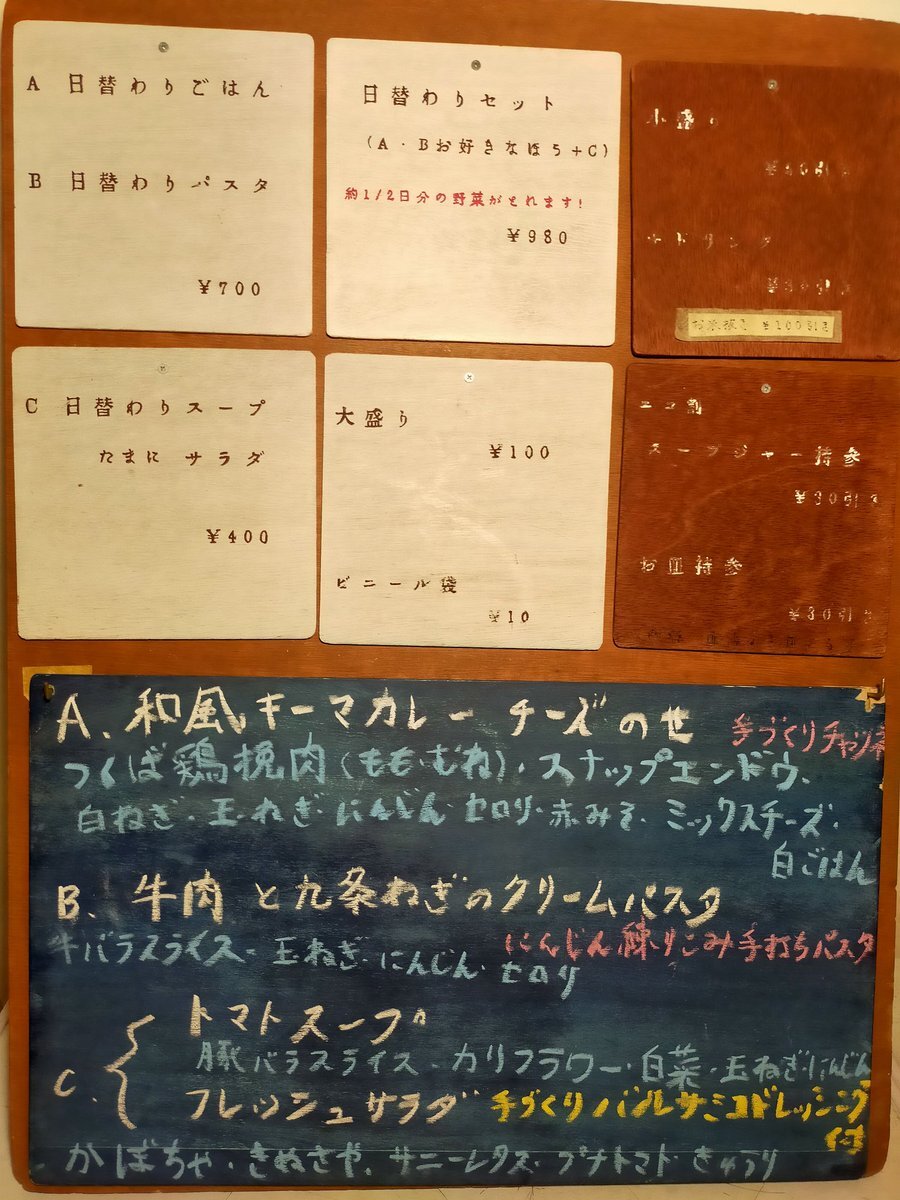 A 日替わりごはん
B 日替わりパスタ
￥700
日替わりセット
(A・Bお好きなほう+C)
約1/2日分の野菜がとれます!
￥980
小盛り
ドリンク
￥100引き
C 日替わりスープ
たまに サラダ
￥400
大盛り
￥100
ビニール袋
￥10
エコ割
スープジャー持参
￥30引き
お皿持参
￥30引き
A. 和風キーマカレー チーズのせ
手づくりチャツネ
つくば鶏挽肉(もも・むね)・スナップエンドウ、
白ねぎ・玉ねぎ・にんじん・セロリ・赤みそ・ミックスチーズ・
白ごはん
B. 牛肉と九条ねぎのクリームパスタ
にんじん練りこみ手打ちパスタ
牛バラスライス・玉ねぎ・にんじん・セロリ
トマトスープ
豚バラスライス・カリフラワー・白菜・玉ねぎ・にんじん
C.
フレッシュサラダ 手づくりバルサミコドレッシング
付
かぼちゃ・きぬさや、サニーレタス・プチトマト・きゅうり